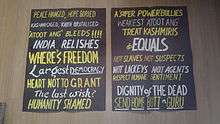 PEACE HANGED, HOPE BURIED
KASHMIR CAGED, RAPED BRUTALISED
ATOOT ANG BLEEDS!!!!
INDIA RELISHES
WHERE'S FREEDOM
Largest DEMOCRACY
HEART NOT TO GRANT
The last wish?
HUMANITY SHAMED
A SUPER POWER BULLIES
WEAKEST ATOOT ANG
TREAT KASHMIRIS
as EQUALS
NOT SLAVES NOT SUSPECTS
NOT LACKEYS NOT AGENTS
RESPECT HUMAN SENTIMENT
DIGNITY OF THE DEAD
SEND HOME BUTT & GURU